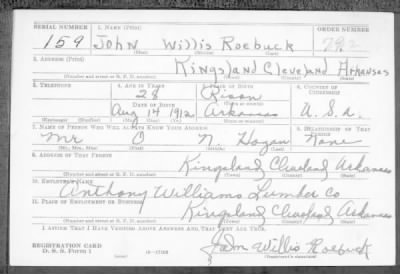 SERIAL NUMBER 1. NAME (Print) ORDER NUMBER
159 John Willis Roebuck 792
(First) (Middle) (Last)
2. ADDRESS (Print)
Kingsland Cleveland Arkansas
(Number and street or R. F. D. number) (Town) (County) (State)
3. TELEPHONE 4. AGE IN YEARS 5. PLACE OF BIRTH 6. COUNTRY OF CITIZENSHIP
28 Rison
DATE OF BIRTH (Town or county)
Aug 14 1912 Arkansas U.S.A.
(Exchange) (Number) (Mo.) (Day) (Yr.) (State or country)
7. NAME OF PERSON WHO WILL ALWAYS KNOW YOUR ADDRESS 8. RELATIONSHIP OF THAT PERSON
Mr O N. Hogan None
(Mr., Mrs., Miss) (First) (Middle) (Last)
9. ADDRESS OF THAT PERSON
Kingsland Cleveland Arkansas
(Number and street or R. F. D. number) (Town) (County) (State)
10. EMPLOYER'S NAME
Anthony Williams Lumber Co
11. PLACE OF EMPLOYMENT OR BUSINESS
Kingsland Cleveland Arkansas
(Number and street or R. F. D. number) (Town) (County) (State)
I AFFIRM THAT I HAVE VERIFIED ABOVE ANSWERS AND THAT THEY ARE TRUE.
REGISTRATION CARD John Willis Roebuck
D. S. S. Form 1 (Registrant's signature)